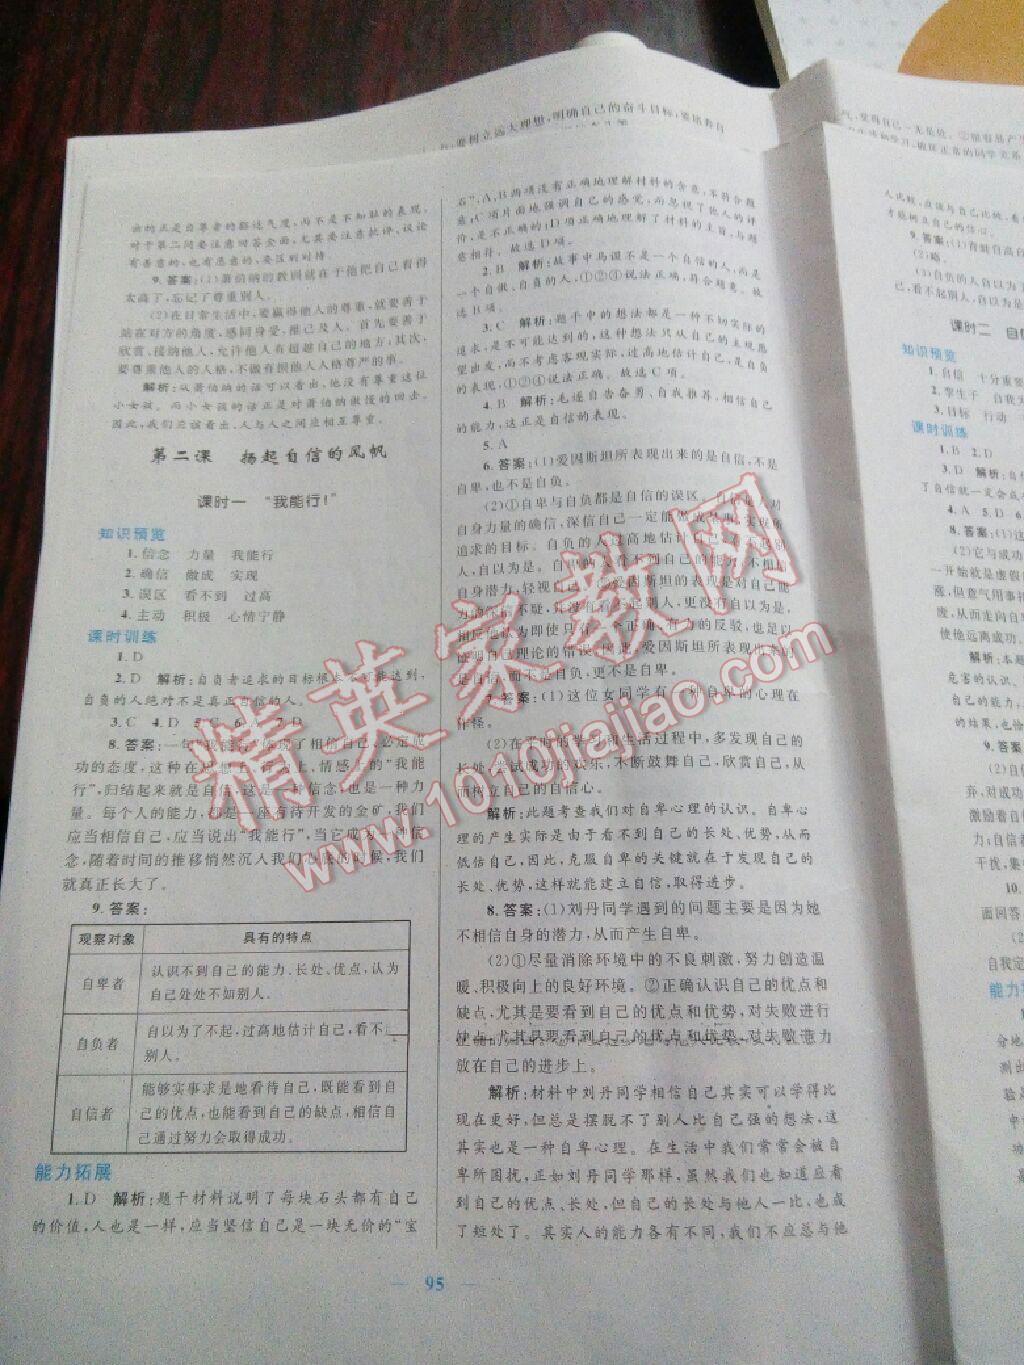 曲的正是自尊者的豁达气度,而不是不知耻的表现。
对于第二问要注意回答全面,尤其要注意批评、议论
有善意的,也有恶意的,要区别对待。
9. 答案:(1)萧伯纳的教训就在于他把自己看得
太高了,忘记了尊重别人。
(2)在日常生活中,要赢得他人的尊重,就要善于
站在对方的角度,感同身受,推己及人。首先要善于
欣赏、接纳他人,允许他人有超越自己的地方;其次,
要尊重他人的人格,不做有损他人人格尊严的事。
解析:从萧伯纳的话可以看出,他没有尊重这位
小女孩。而小女孩的话正是对萧伯纳傲慢的回击。
因此,我们应该看出,人与人之间应相互尊重。
第二课 扬起自信的风帆
课时一 “我能行!”
知识预览
1. 信念 力量 我能行
2. 确信 做成 实现
3. 误区 看不到 过高
4. 主动 积极 心情宁静
课时训练
1. D
2. D 解析:自负者追求的目标根本不可能达到,
自负的人绝对不是真正自信的人。
3. C 4. D 5. C 6. A 7. D
8. 答案:一句“我能行”体现了相信自己、必定成
功的态度,这种在思想上、行为上、情感上的“我能
行”,归结起来就是自信,这是一种信念,也是一种力
量。每个人的能力,都是一座有待开发的金矿,我们
应当相信自己,应当说出“我能行”,当它成为一种信
念,随着时间的推移悄然沉入我们心底的时候,我们
就真正长大了。
9. 答案:
观察对象 具有的特点
自卑者 认识不到自己的能力、长处、优点,认为
自己处处不如别人。
自负者 自以为了不起,过高地估计自己,看不起
别人。
自信者 能够实事求是地看待自己,既能看到自
己的优点,也能看到自己的缺点,相信自
己通过努力会取得成功。
能力拓展
1. D 解析:题干材料说明了每块石头都有自己
的价值,人也是一样,应当坚信自己是一块无价的“宝
要树立远大理想,明确自己的奋斗目标,要培养自
石”,A、B两项没有正确地理解材料的含意,不符合题
意;C项片面地强调自己的感觉,而忽视了他人的评
价,是不正确的;D项正确地理解了材料的主旨,与题
意相符。故选D项。
2. B 解析:故事中马谡不是一个自信的人,而是
一个自傲、自负的人,①②④说法正确,符合题意。故
选B项。
3. C 解析:题干中的想法都是一种不切实际的
追求,是不可能达到的,这种想法只从自己的主观愿
望出发,而不考虑客观实际,过高地估计自己,是自负
的表现,①②④说法正确。故选C项。
4. B 解析:毛遂自告奋勇、自我推荐,相信自己
的能力,这正是自信的表现。
5. A
6. 答案:(1)爱因斯坦所表现出来的是自信,不是
自卑,也不是自负。
(2)①自卑与自负都是自信的误区。自信是人对
自身力量的确信,深信自己一定能做成某事,实现所
追求的目标。自负的人过高地估计自己,看不起别
人,自以为是。自卑的人看不到自己的能力,不相信
自身潜力,轻视自己。②爱因斯坦的表现是对自己能
力的深信不疑,并没有看不起别人,更没有自以为是,
相反他认为即使只有一个正确、有力的反驳,也足以
证明自己理论的错误。因此,爱因斯坦所表现出来的是
自信,而不是自负,更不是自卑。
7. 答案:(1)这位女同学有一种自卑的心理在
作怪。
(2)在平时的学习和生活过程中,多发现自己的
长处,尝试成功的欢乐,不断鼓舞自己,欣赏自己,从
而树立自己的自信心。
解析:此题考查我们对自卑心理的认识。自卑心
理的产生实际是由于看不到自己的长处、优势,从而
低估自己,因此,克服自卑的关键就在于发现自己的
长处、优势,这样就能建立自信,取得进步。
8. 答案:(1)刘丹同学遇到的问题主要是因为她
不相信自身的潜力,从而产生自卑。
(2)①尽量消除环境中的不良刺激,努力创造温
暖、积极向上的良好环境。②正确认识自己的优点和
缺点,尤其是要看到自己的优点和优势,对失败进行
缺点,尤其是要看到自己的优点和优势,对失败进力
放在自己的进步上。
解析:材料中刘丹同学相信自己其实可以学得比
现在更好,但总是摆脱不了别人比自己强的想法,这
其实也是一种自卑心理。在生活中我们常常会被自
卑所困扰,正如刘丹同学那样,虽然我们也知道应看
到自己的优点、长处,但自己的长处与他人一比,也成
了短处了。其实人的能力各有不同,我们不应总与他
95
人比较,应该与自己比
才能树立自己的
9. 答案:(1)
(2)略。
(3)自负的人自以为
己,看不起别人,自以为是
课时二 自信
知识预览
1. 自信 十分重要
2. 孪生子 自我
3. 目标 行动
课时训练
1. B 2. D
3. D 解析:自
了自信就一支会成
4. A 5. D 6.
8. 答案:(1)这
(2)它与成功
一开始就是虚假
魔,但意气用事
灭,从而走向自
使他远离成功,
解析:本题
危害的认识。
自己的能力,
的结果,也恰
9. 答案
(2)自信
弃,对成功
激励着自
力;自信
干扰,集
10.
面回答
(2)
自我定
能力拓
分地
测出
验是
中
功
精英家教网
www.1010jiajiao.com